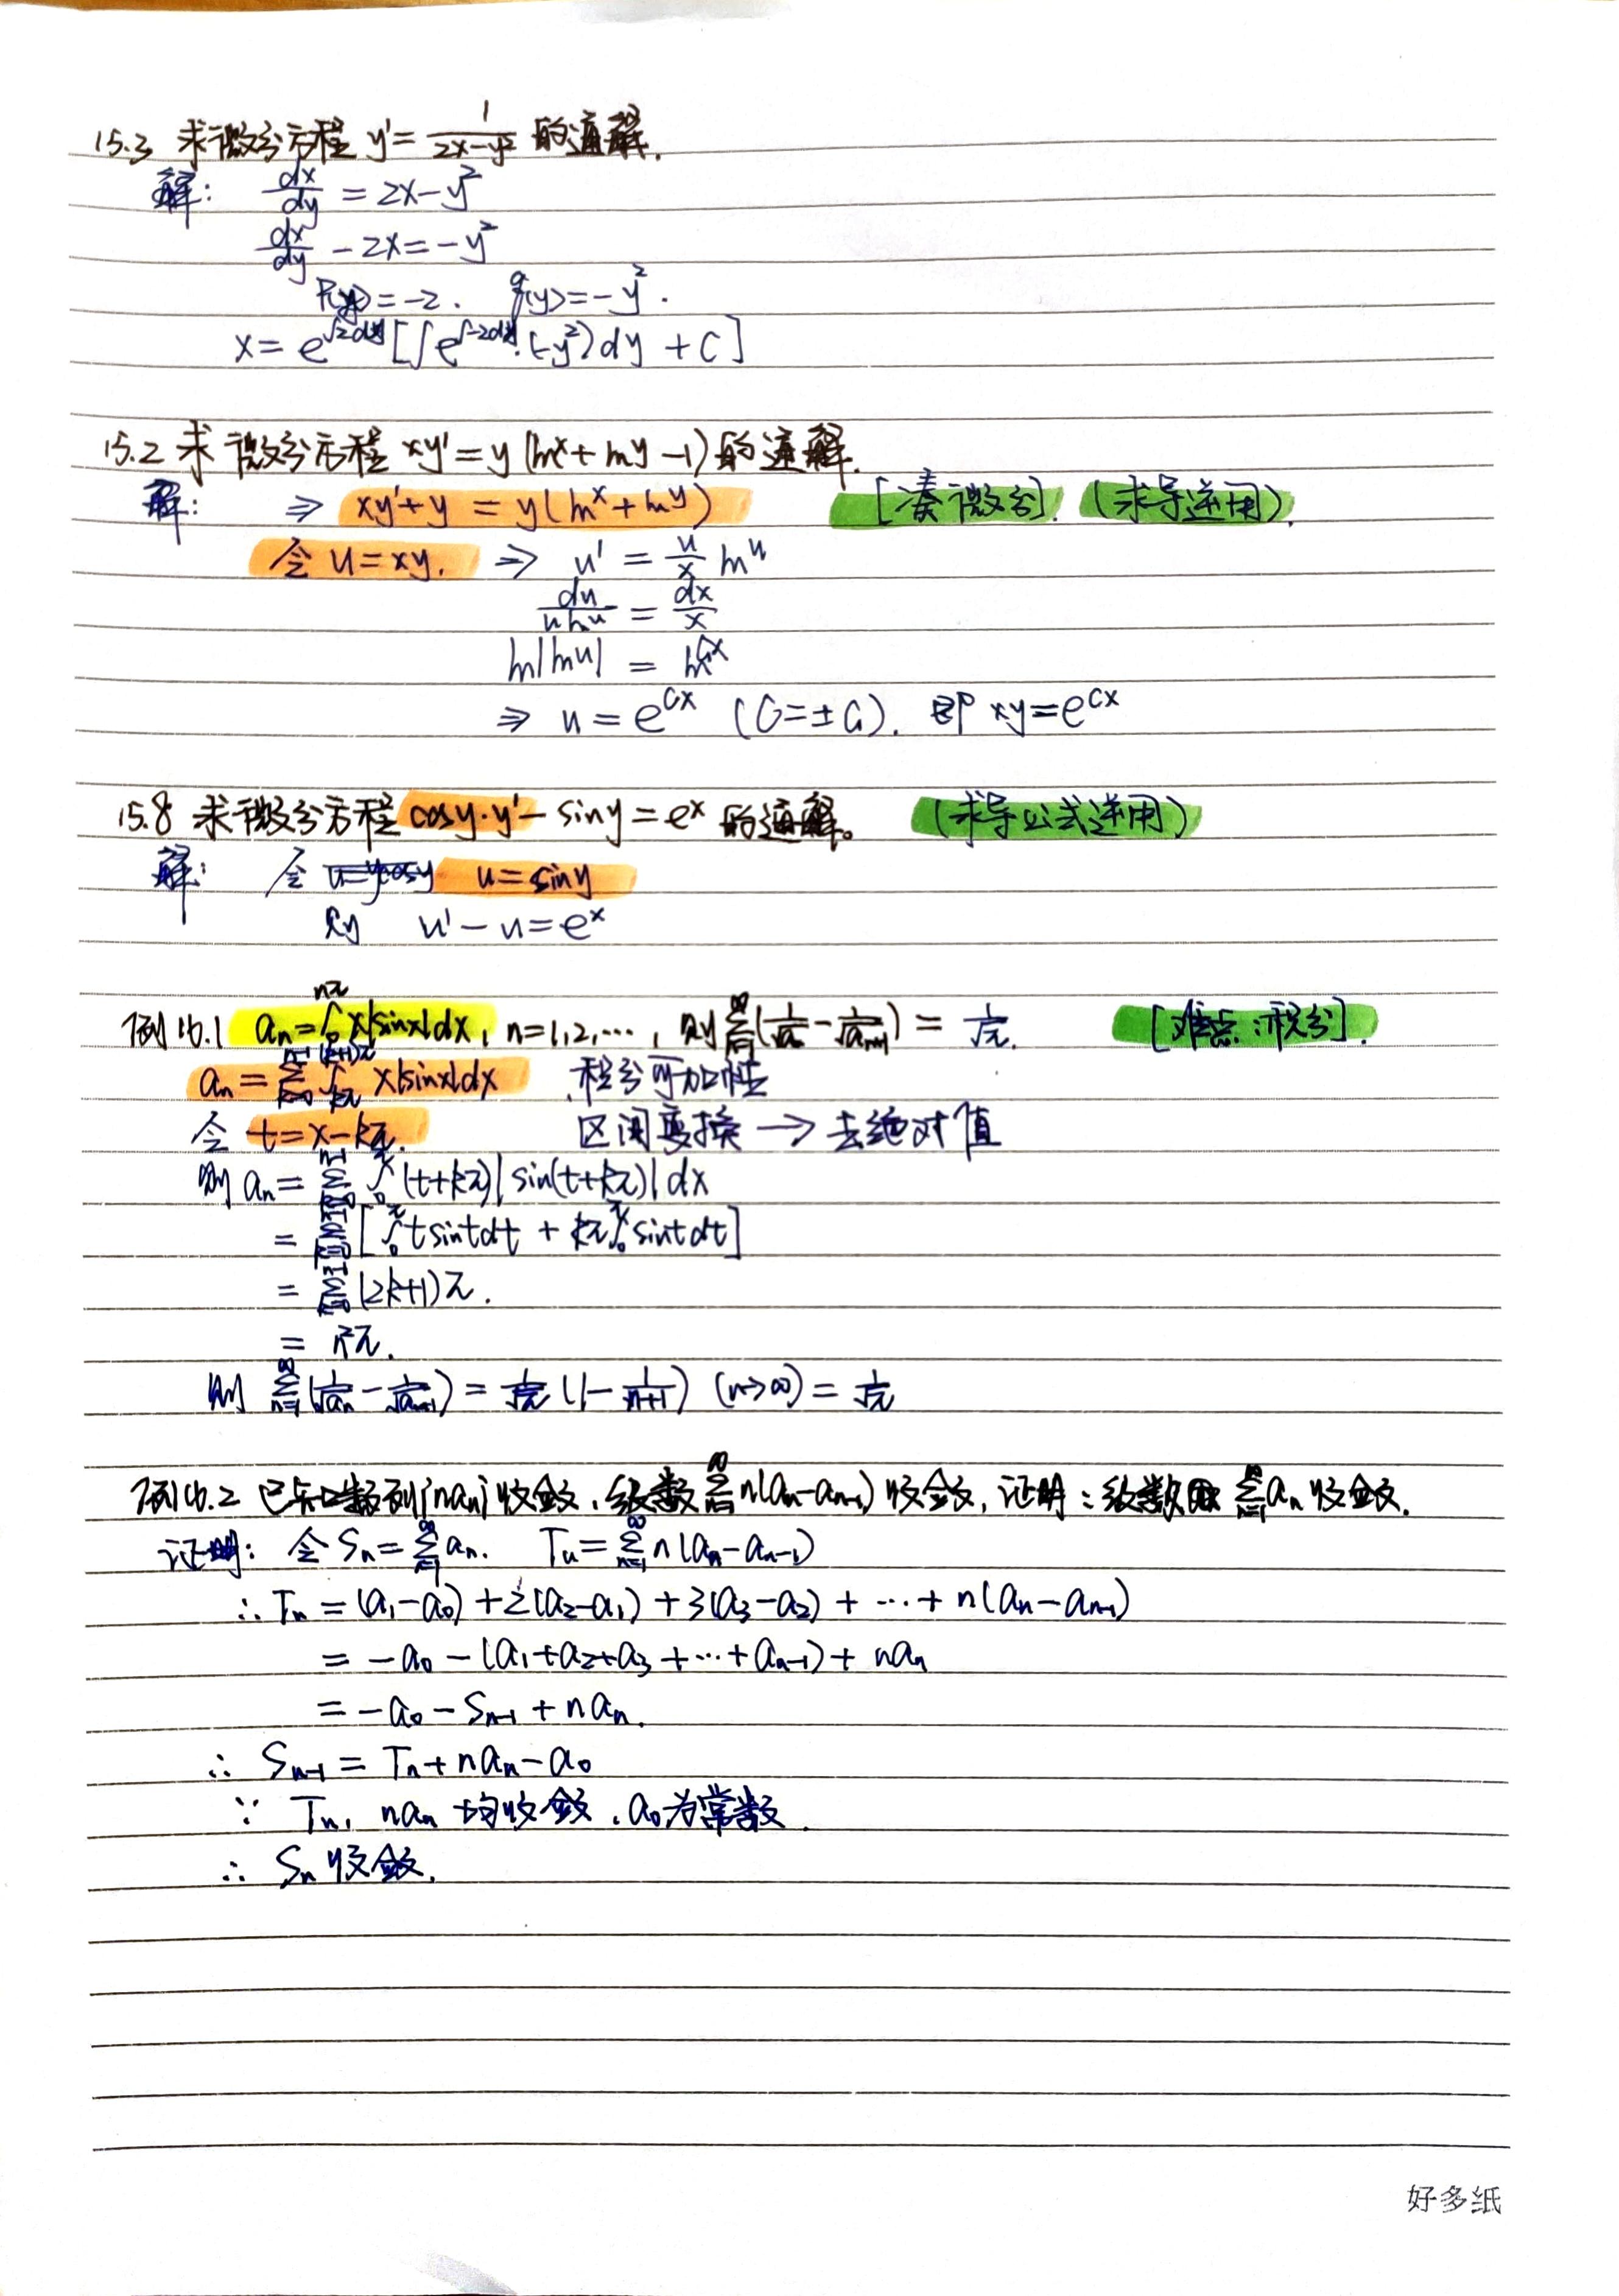 15.3 求微分方程 y' = 1/(2x-y²) 的通解.
解: dx/dy = 2x-y²
dx/dy - 2x = -y²
P(y) = -2. q(y) = -y².
x = e^{∫2dy} [∫e^{∫-2dy}·(-y²)dy + C]
15.2 求微分方程 xy' = y(ln x + ln y - 1) 的通解.
解: ⇒ xy'+y = y(ln x + ln y) [凑微分]. (求导逆用).
令 u = xy. ⇒ u' = u/x ln u
du/(u ln u) = dx/x
ln|ln u| = ln C₁x
⇒ u = e^{Cx} (C=±C₁). 即 xy = e^{Cx}
15.8 求微分方程 cosy·y' - siny = e^x 的通解。 (求导公式逆用)
解: 令 u = siny
则 u' - u = e^x
例16.1 aₙ = ∫₀^{nπ} x|sinx|dx, n=1,2,⋯, 则 ∑_{n=1}^{∞}(1/√aₙ - 1/√aₙ₊₁) = 1/√π. [难点:积分].
aₙ = ∑_{k=0}^{n-1} ∫_{kπ}^{(k+1)π} x|sinx|dx 积分可加性
令 t = x-kπ. 区间变换 → 去绝对值
则 aₙ = ∑_{k=0}^{n-1} ∫₀^π (t+kπ)|sin(t+kπ)|dx
= ∑_{k=0}^{n-1} [∫₀^π t sint dt + kπ∫₀^π sint dt]
= ∑_{k=0}^{n-1} (2k+1)π.
= n²π.
则 ∑_{n=1}^{∞}(1/√aₙ - 1/√aₙ₊₁) = 1/√π (1 - 1/(n+1)) (n→∞) = 1/√π
例16.2 已知数列{naₙ}收敛,级数∑_{n=1}^{∞} n(aₙ-aₙ₋₁)收敛,证明:级数∑_{n=1}^{∞} aₙ 收敛.
证明: 令 Sₙ = ∑_{n=1}^{∞} aₙ. Tₙ = ∑_{n=1}^{∞} n(aₙ-aₙ₋₁)
∴ Tₙ = (a₁-a₀) + 2(a₂-a₁) + 3(a₃-a₂) + ⋯ + n(aₙ-aₙ₋₁)
= -a₀ - (a₁+a₂+a₃+⋯+aₙ₋₁) + naₙ
= -a₀ - Sₙ₋₁ + naₙ.
∴ Sₙ₋₁ = Tₙ + naₙ - a₀
∵ Tₙ, naₙ 均收敛, a₀为常数.
∴ Sₙ 收敛.
好多纸